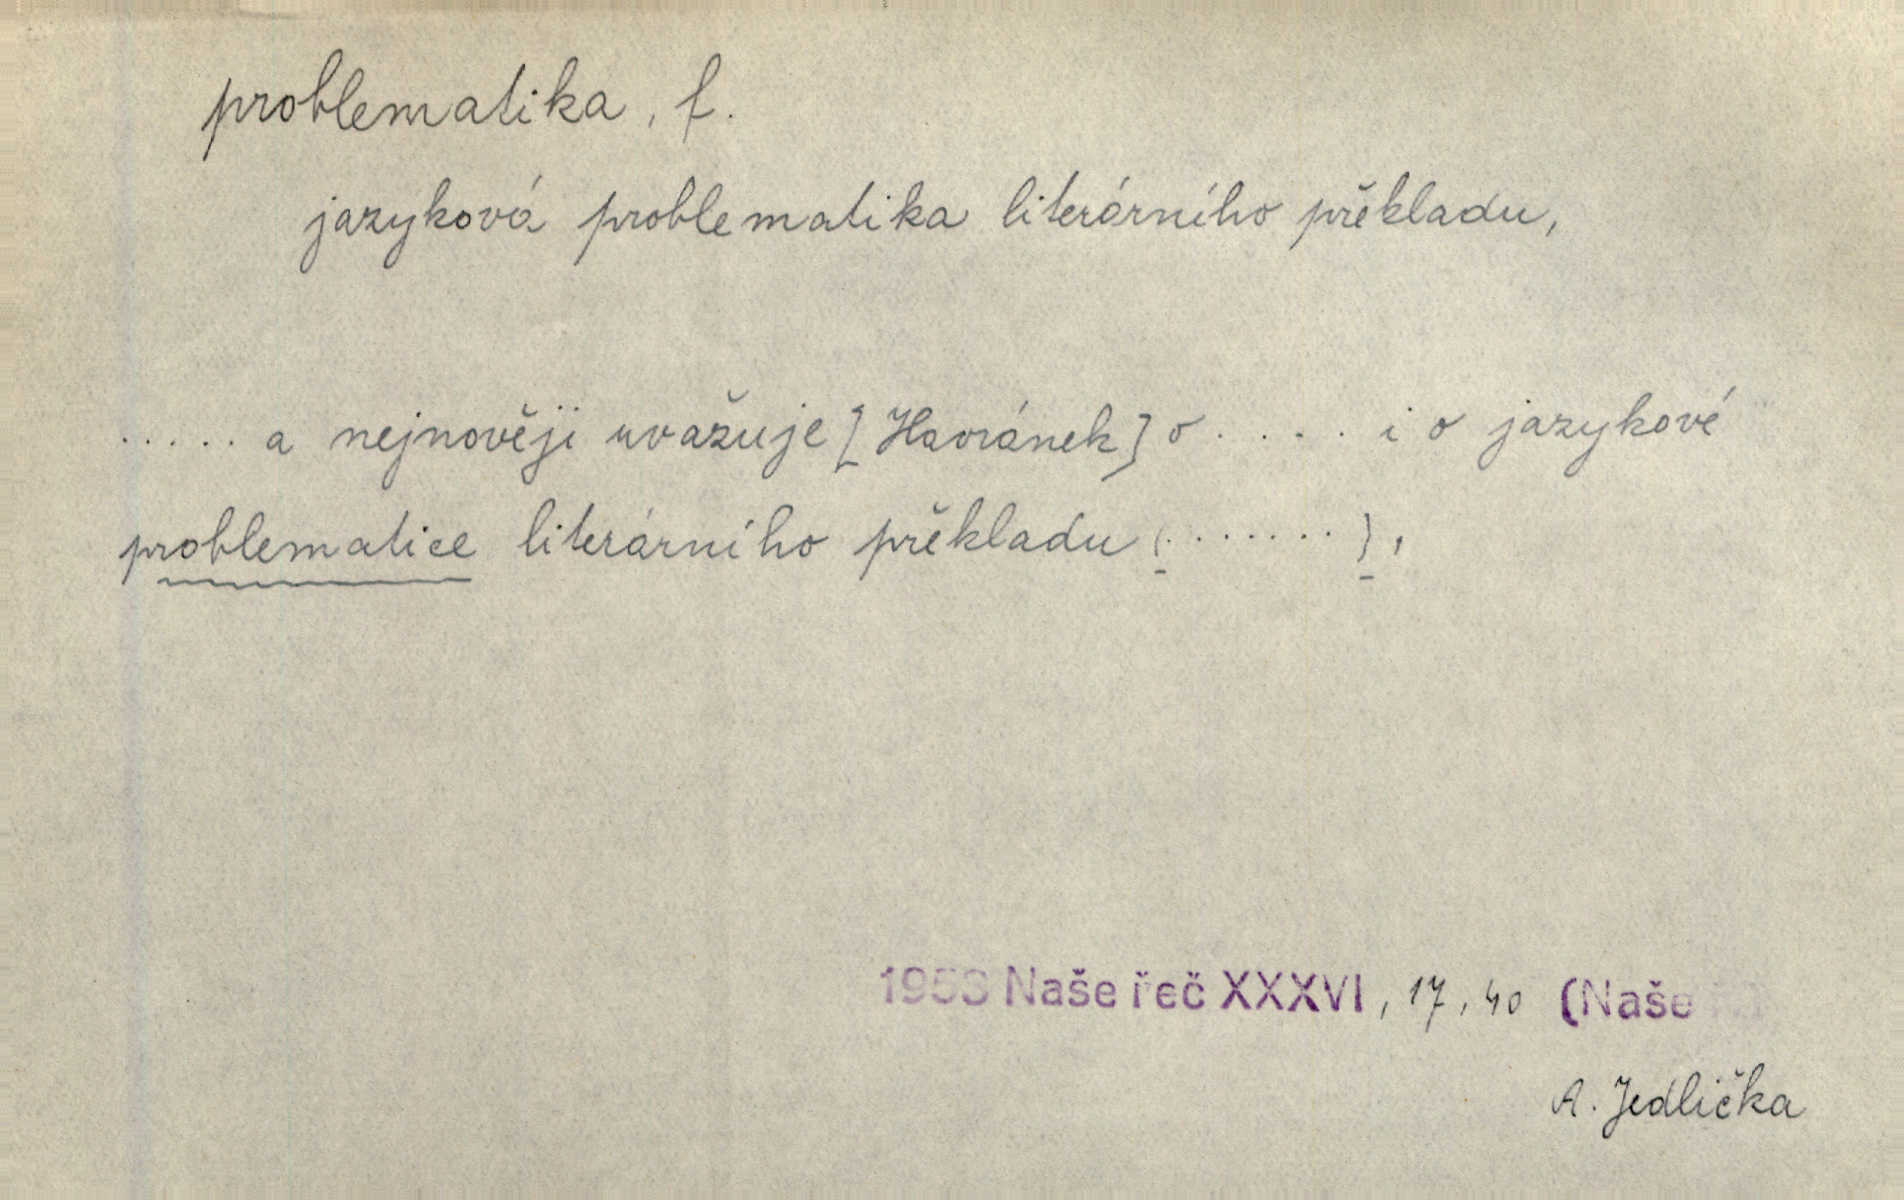 problematika, f.
jazyková problematika literárního překladu,
..... a nejnověji uvažuje [Havránek] o .... i o jazykové
problematice literárního překladu (.......),
1953 Naše řeč XXXVI, 17, 40 (Naše
A. Jedlička